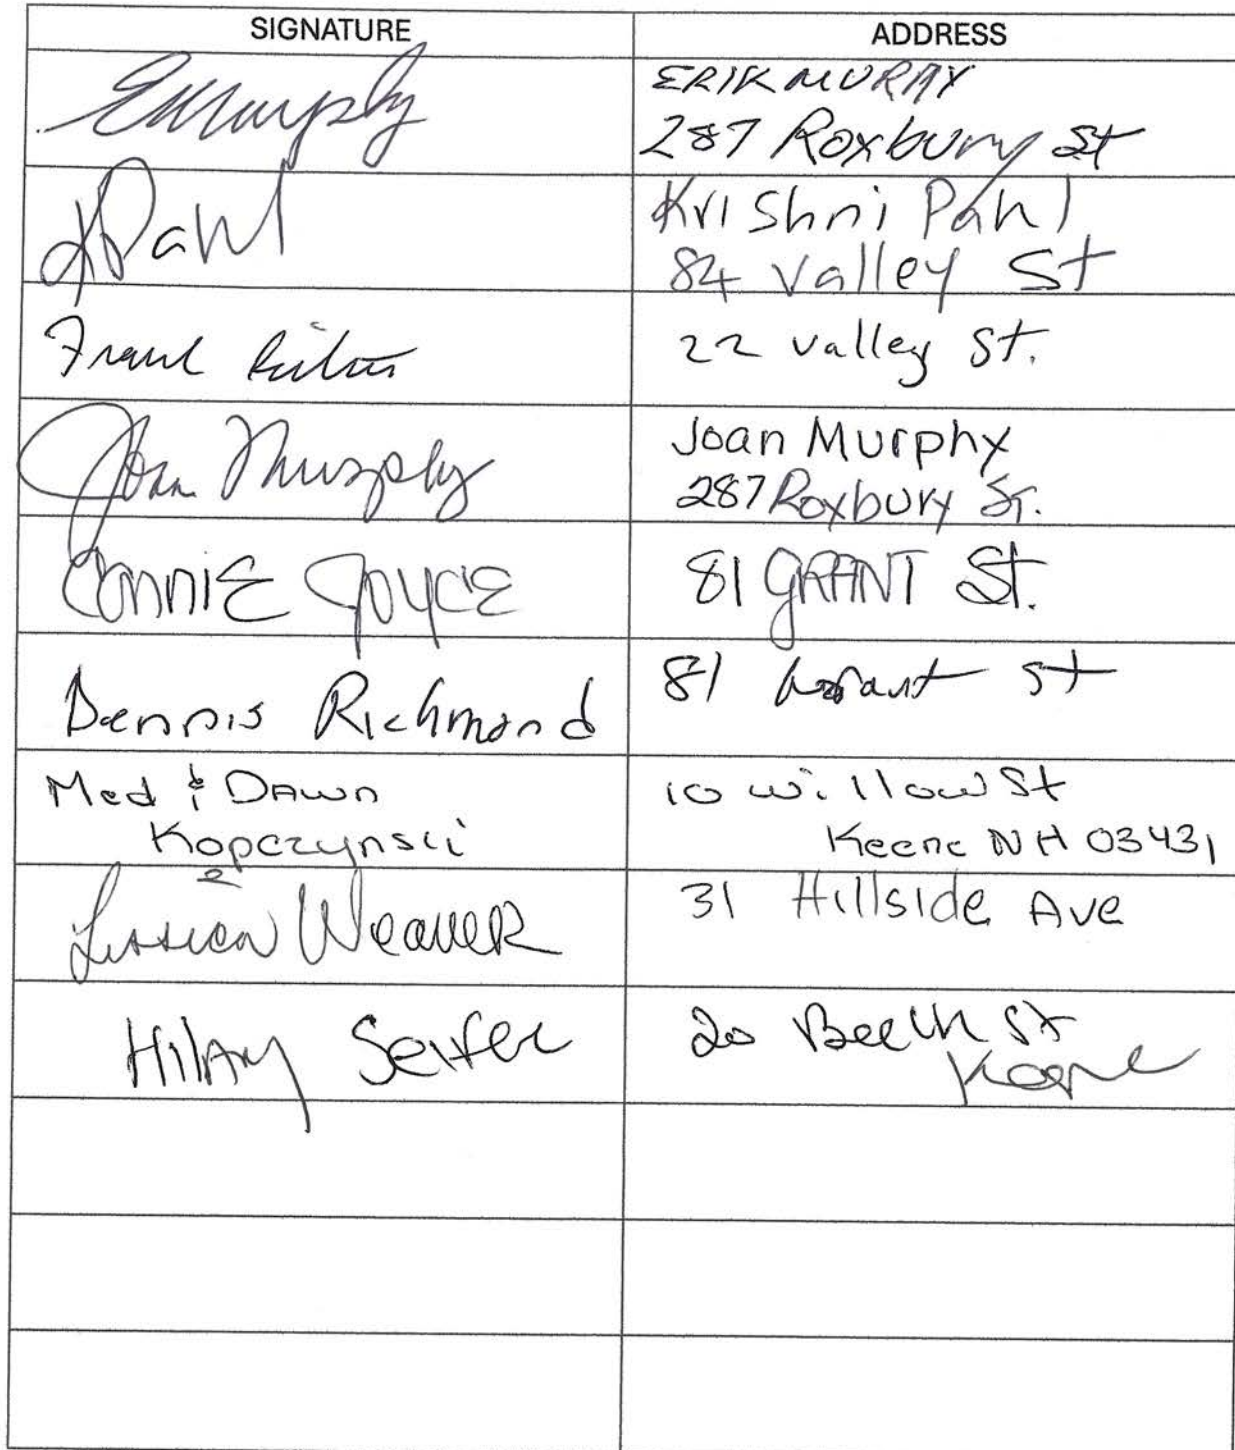 SIGNATURE ADDRESS
EMurphy ERIK MURPHY
287 Roxbury St
KPahl Krishni Pahl
84 Valley St
Frank 22 Valley St.
Joan Murphy Joan Murphy
287 Roxbury St.
Connie Joyce 81 GRANT St.
Dennis Richmond 81 Grant St
Med & Dawn 10 Willow St
Kopczynski Keene NH 03431
Jessica Weaver 31 Hillside Ave
Hilary Seifer 20 Beech St
Keene